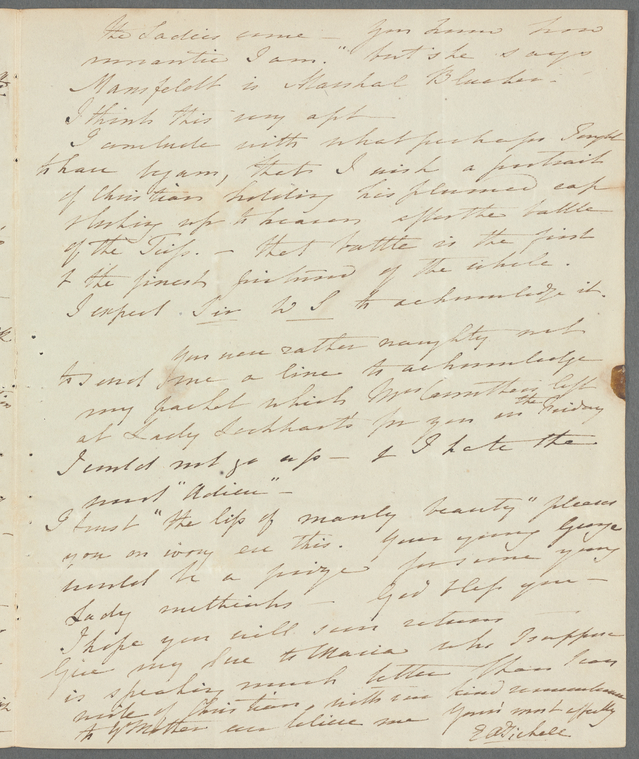 the Ladies come — You know how
romantic I am." but she says
Mansfeldt is Marshal Blucher.
I think this very apt
I conclude with what perhaps I ought
to have begun, that I wish a portrait
of Christian holding his plumed cap
looking up to heaven after the battle
of the — that battle is the first
& the finest of the whole.
I expect Sir W S to acknowledge it.
You were rather naughty not
to send me a line to acknowledge
my packet which Mrs left
at Lady Lockhart's for you on the Friday
I could not go up — & I hate the
word "Adieu" —
I trust "the lip of manly beauty" pleases
you on ivory ere this. Your young George
would be a prize for some young
Lady methinks — God bless you —
I hope you will soon return
Give my love to Maria who I suppose
is speaking much better than I can
write of Christian, with our kind remembrance
to yr Mother ever believe me Yours most